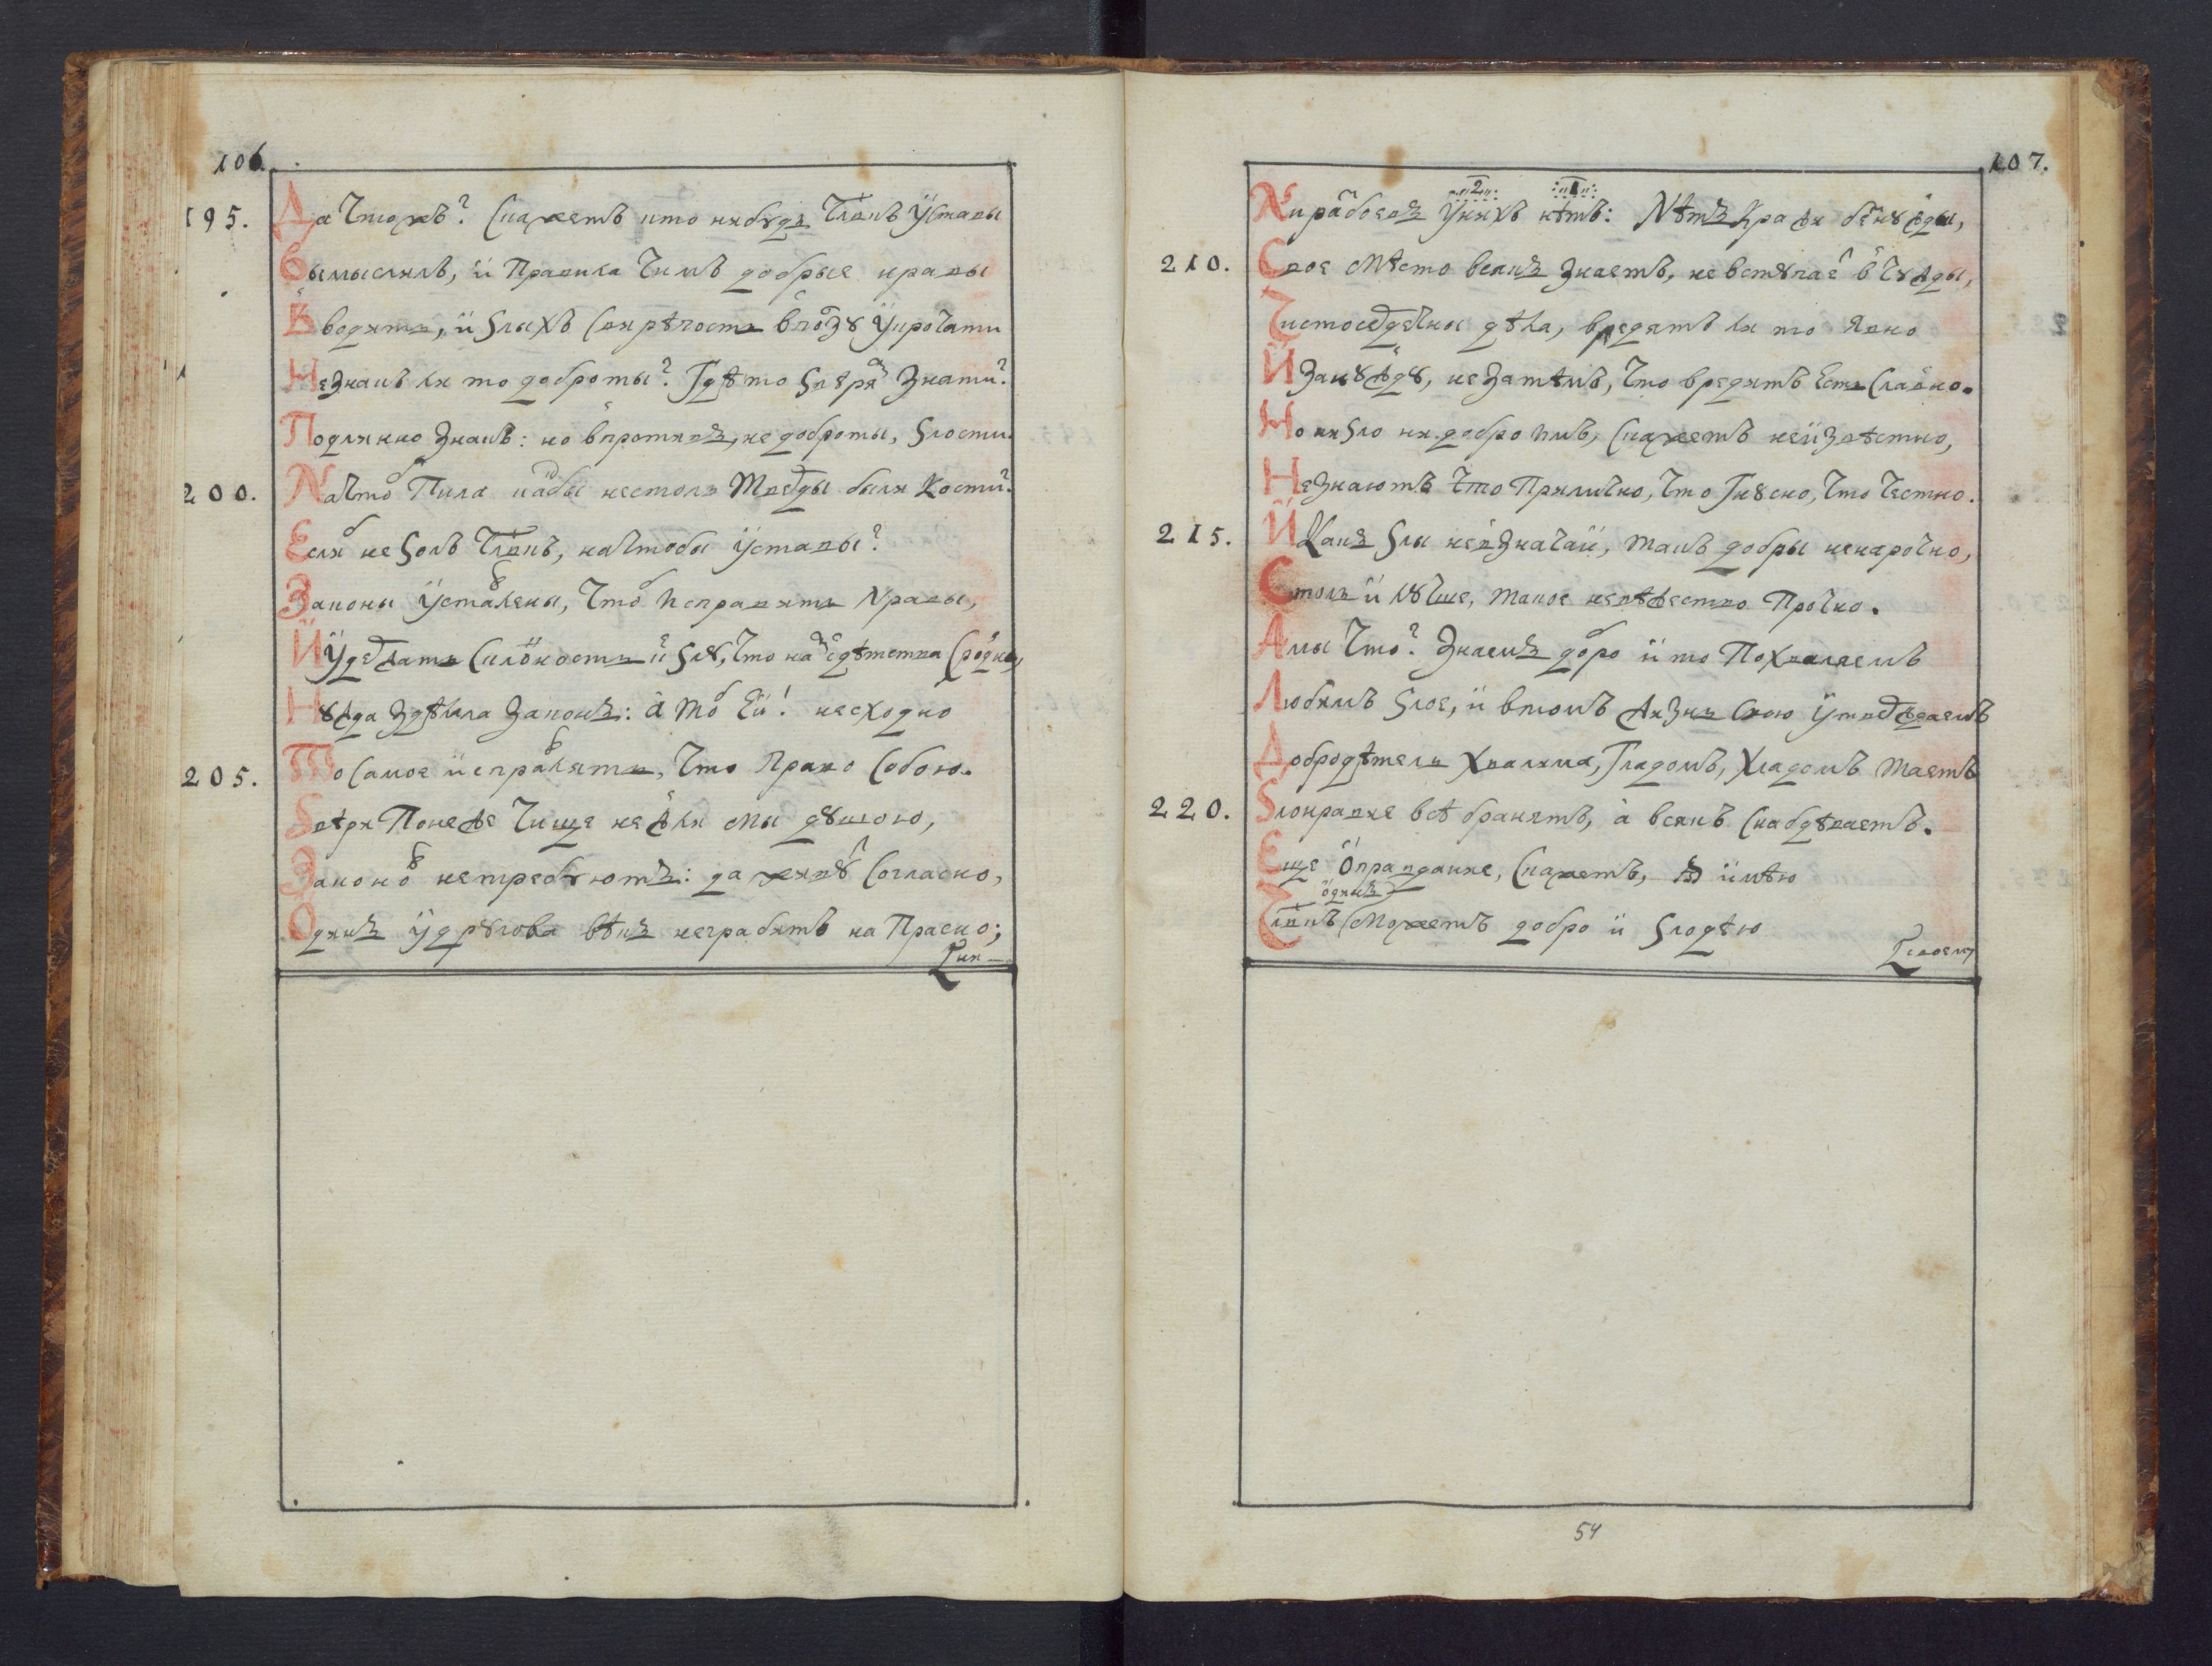 106.
195. Да Чтожъ? Скажетъ кто нибꙋдь Члвкъ Уставы
Вымыслилъ, и Правила Чимъ добрые нравы
Вводятъ, и Ѕлыхъ Свирѣпость впо́зꙋ Упрочати
Незнакъ ли то доброты? Гдѣ то Ѕвѣря Знати?
Подлинно Знакъ: но впротивъ, не доброты, Ѕлости.
200. Начтоб Пила кабы нестоль Тверды были Кости?
Еслиб не Ѕолъ Члвкъ, начтобы Уставы?
Законы Уставлены, Чтоб Исправить Нравы,
И Удержать Склоность и Ѕлꙋ, Что на з Сдѣтства Сродна,
Нꙋжда Здѣлала Законъ: а тоб Ей! несходно
205. То Самое исправлять, Что Право Собою.
Ѕвѣри Понеже Чище нежли мы дꙋшою,
Законов нетребꙋютъ: да живꙋт Согласно,
Одинъ Удрꙋгова вѣкъ неграбитъ на Прасно;
Ѯни-
107.
Ни разбоевъ Унихъ нѣтъ: Нѣтъ Кражи безнꙋжды,
·2· ·1·
210. Свое Мѣсто всякъ Знаетъ, не встꙋпает в Чꙋжды,
Чистосердечны дѣла, вредятъ ли то Явно
И Занꙋждꙋ, не Затѣмъ, Что вредитъ Есть Славно.
Но ни Ѕло ни добро Имъ, Скажетъ неизвѣстно,
Незнаютъ Что Прилично, Что Гнꙋсно, Что Честно.
215. И Какъ Ѕлы невзначай, такъ добры ненарочно,
Столь и лꙋчше, такое невѣжество Прочно.
Амы Что? Знаемъ добро и то Похваляемъ
Любимъ Ѕлое, и втомъ Жизнь Свою Утверждаемъ
Добродѣтель Хвалима, Гладомъ, Хладомъ таетъ
220. Ѕлонравие всѣ бранятъ, а всякъ Снабдѣваетъ.
Еще Оправдание, Скажетъ, имѣю
одинъ
Члвкъ Можетъ добро и Ѕлодѣю
Ѯсвоемꙋ
54